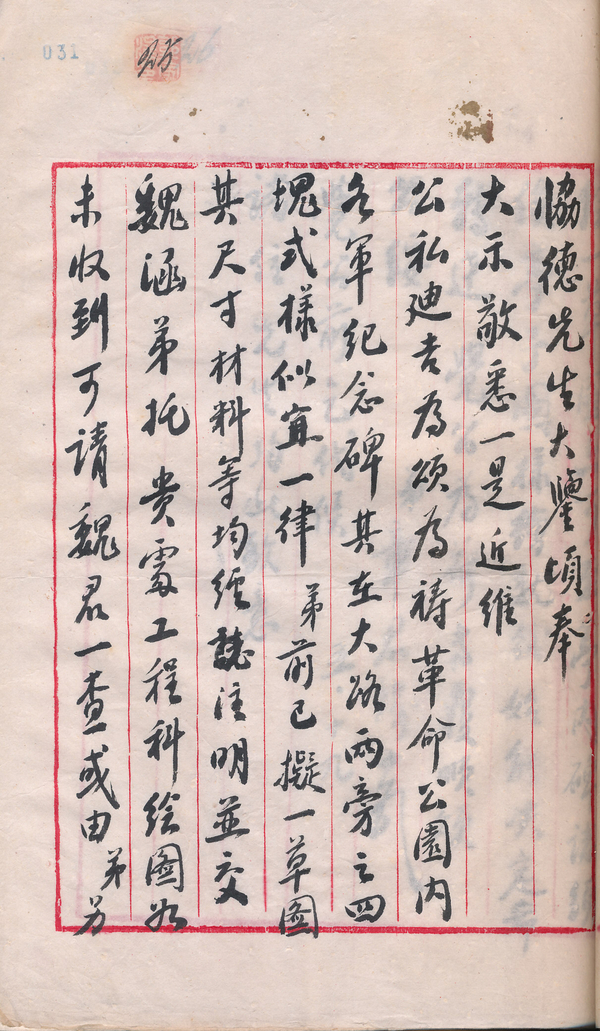 031
協德先生大鑒頃奉
大示敬悉一是近維
公私迪吉為頌為禱革命公園內
各軍紀念碑其在大路兩旁之四
塊式樣似宜一律弟前已擬一草圖
其尺寸材料等均經誌注明並交
魏涵弟托貴處工程科绘圖如
未收到可請魏君一查或由弟另